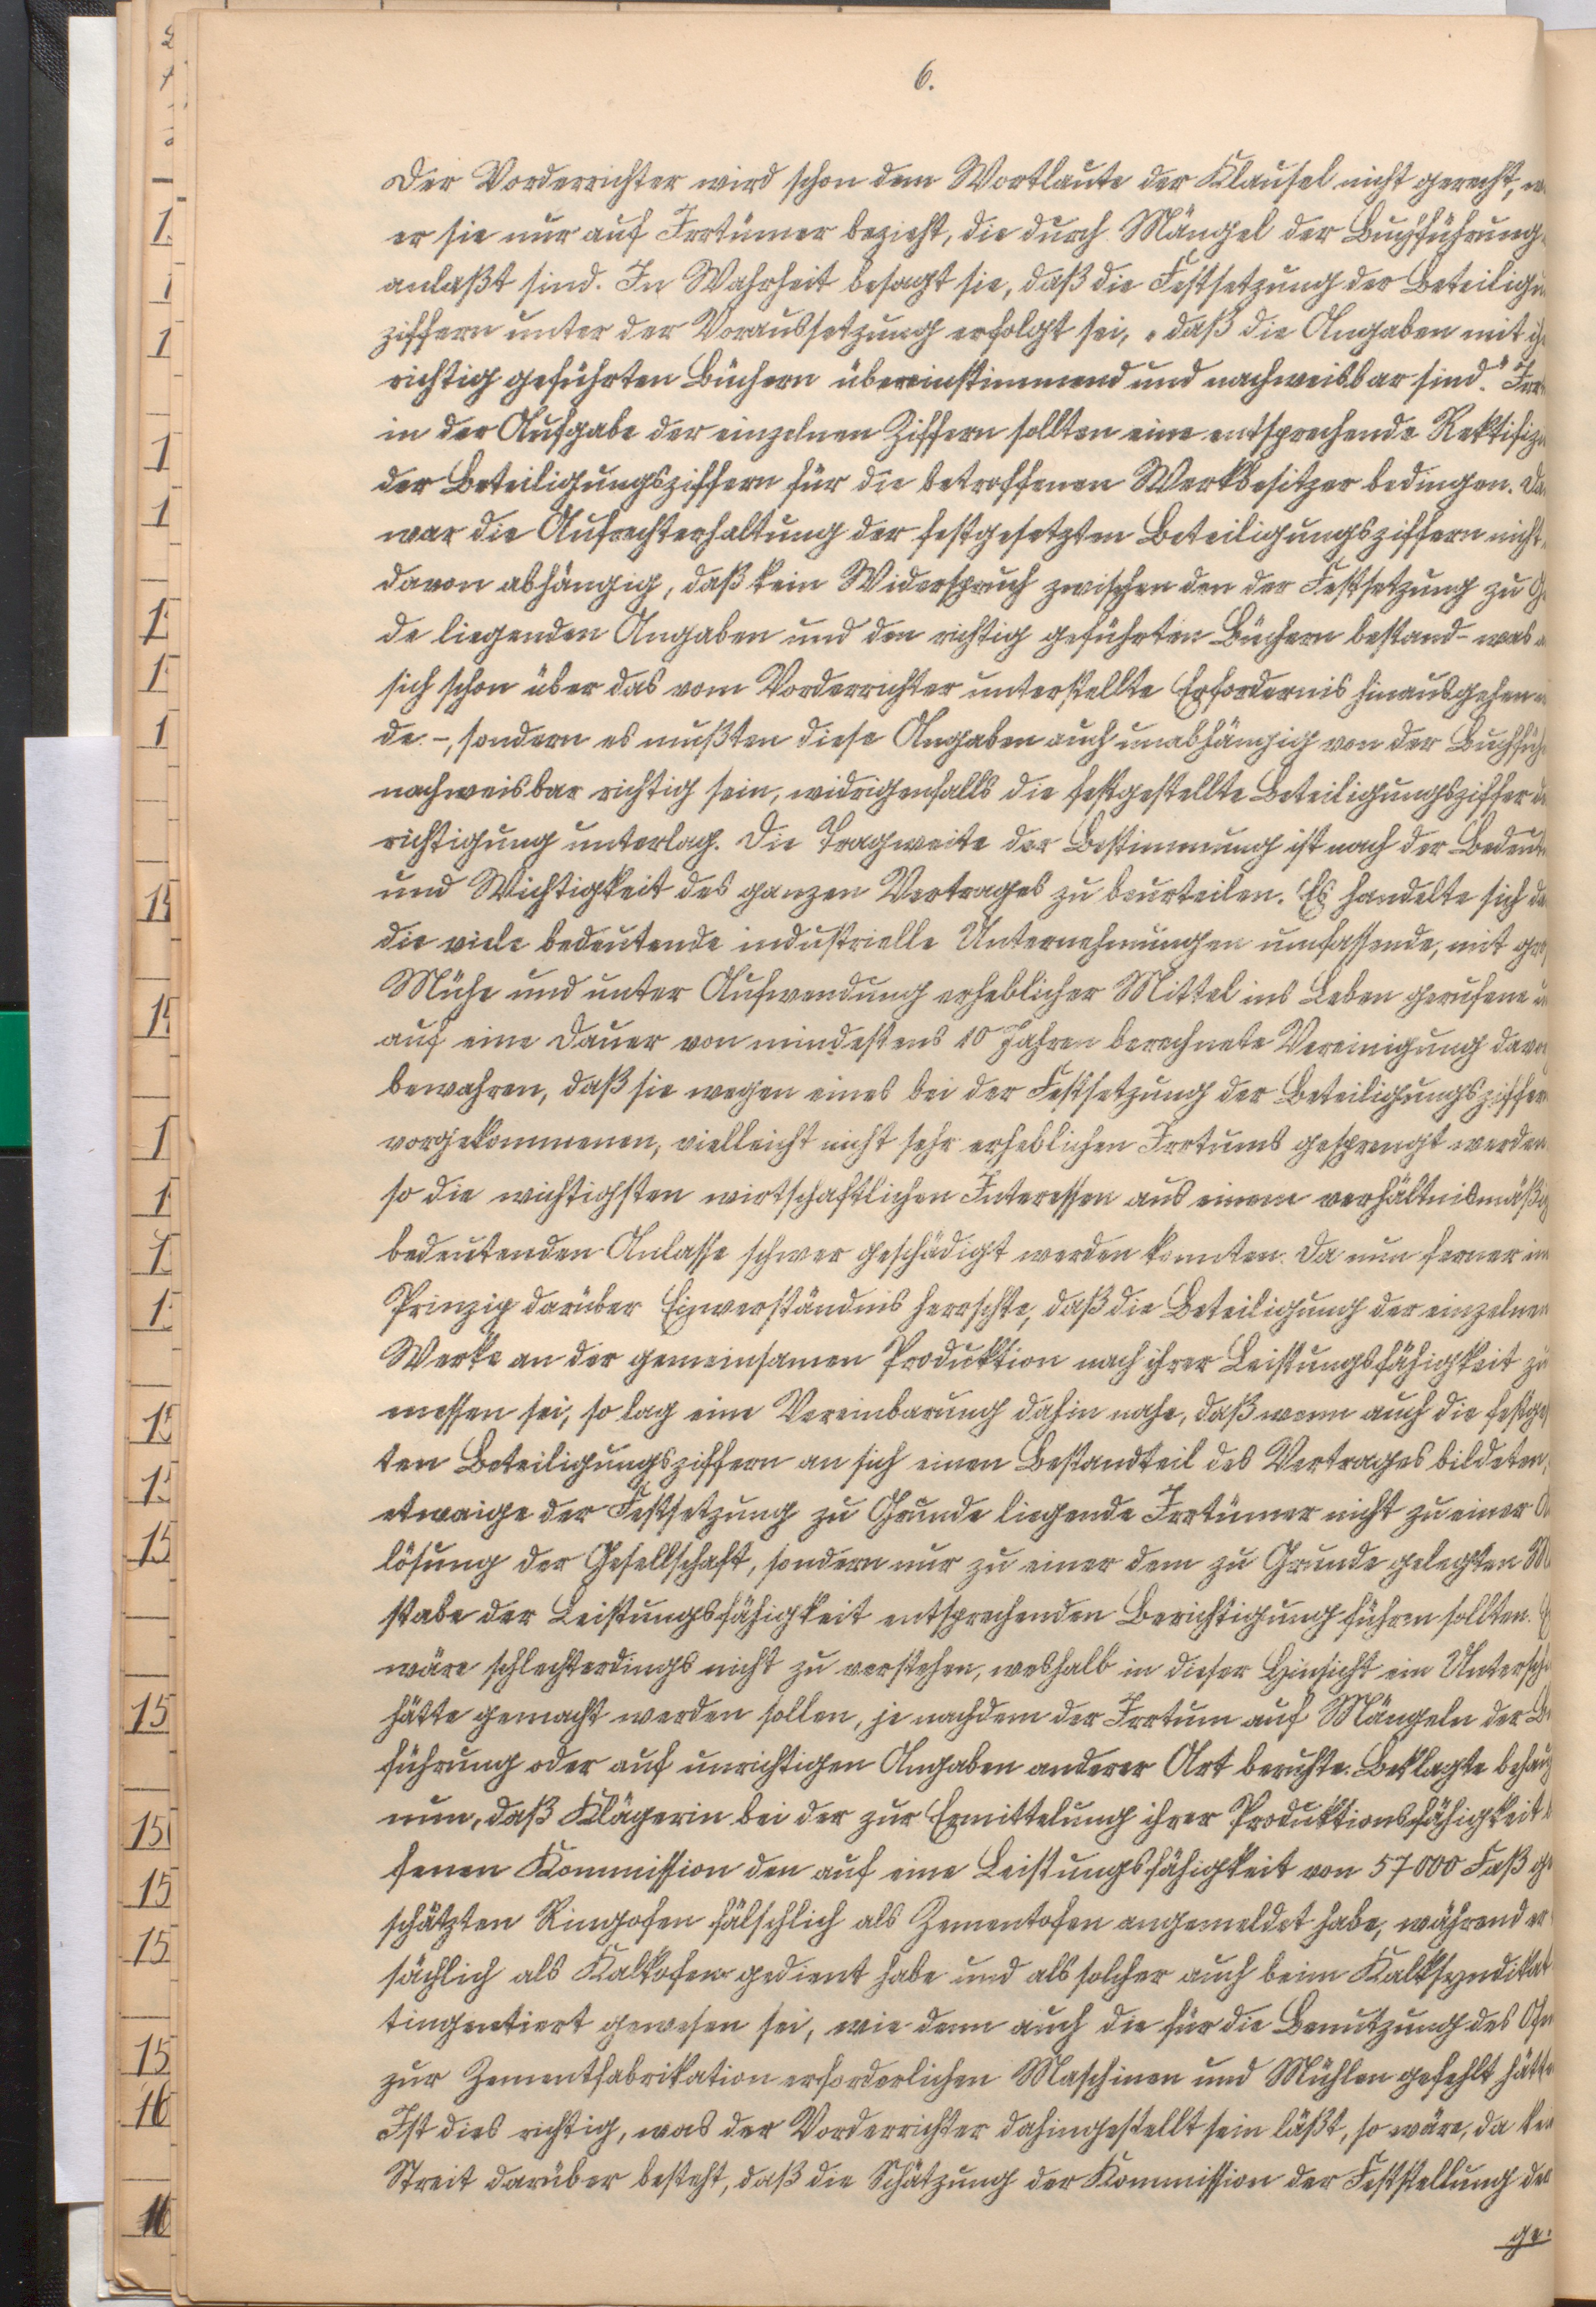 6.
Der Vorderrichter wird schon dem Wortlaute der Klausel nicht gerecht,
er sie nur auf Irrtümer bezieht, die durch Mängel der Buchführung
anlaßt sind. In Wahrheit besagt sie, daß die Festsetzung der Beteiligu
ziffern unter der Voraussetzung erfolgt sei, „daß die Angaben mit
richtig geführten Büchern übereinstimmend und nachweisbar sind.“ Irr
in der Aufgabe der einzelnen Ziffern sollten eine entsprechende Rektifiz
der Beteiligungsziffern für die betroffenen Werkbesitzer bedingen. Da
war die Aufrechterhaltung der festgesetzten Beteiligungsziffern nicht
davon abhängig, daß kein Widerspruch zwischen den der Festsetzung zu G
de liegenden Angaben und den richtig geführten Büchern bestand - was
sich schon über das vom Vorderrichter unterstellte Erfordernis hinausgehen
de -, sondern es mußten diese Angaben auch unabhängig von der Buchfüh
nachweisbar richtig sein, widrigenfalls die festgestellte Beteiligungsziffer de
richtigung unterlag. Die Tragweite der Bestimmung ist nach der Bedeut
und Wichtigkeit des ganzen Vertrages zu beurteilen. Es handelte sich da
die viele bedeutende industrielle Unternehmungen umfassende, mit gro
Mühe und unter Aufwendung erheblicher Mittel ins Leben gerufene u
auf eine Dauer von mindestens 10 Jahren berechnete Vereinigung davo
bewahren, daß sie wegen eines bei der Festsetzung der Beteiligungsziffer
vorgekommenen, vielleicht nicht sehr erheblichen Irrtums gesprengt werden
so die wichtigsten wirtschaftlichen Interessen aus einem verhältnismäßig
bedeutenden Anlasse schwer geschädigt werden konnten. Da nun ferner im
Prinzip darüber Einverständnis herrschte, daß die Beteiligung der einzelnen
Werke an der gemeinsamen Produktion nach ihrer Leistungsfähigkeit zu
messen sei, so lag eine Vereinbarung dahin nahe, daß wenn auch die festge
ten Beteiligungsziffern an sich einen Bestandteil des Vertrages bildeten,
etwaige der Festsetzung zu Grunde liegende Irrtümer nicht zu einer
lösung der Gesellschaft, sondern nur zu einer dem zu Grunde gelegten M
stabe der Leistungsfähigkeit entsprechenden Berichtigung führen sollten. E
wäre schlechterdings nicht zu verstehen, weshalb in dieser Hinsicht ein Untersch
hätte gemacht werden sollen, je nachdem der Irrtum auf Mängeln der B
führung oder auf unrichtigen Angaben anderer Art beruhte. Beklagte behau
nun, daß Klägerin bei der zur Ermittelung ihrer Produktionsfähigkeit
senen Kommission den auf eine Leistungsfähigkeit von 57000 Faß ge
schätzten Ringofen fälschlich als Zementofen angemeldet habe, während er
sächlich als Kalkofen gedient habe und als solcher auch beim Kalksyndikat
tingentiert gewesen sei, wie denn auch die für die Benutzung des Ofen
zur Zementfabrikation erforderlichen Maschinen und Mühlen gefehlt hätte
Ist dies richtig, was der Vorderrichter dahingestellt sein läßt, so wäre, da kei
Streit darüber besteht, daß die Schätzung der Kommission der Feststellung der
ge-